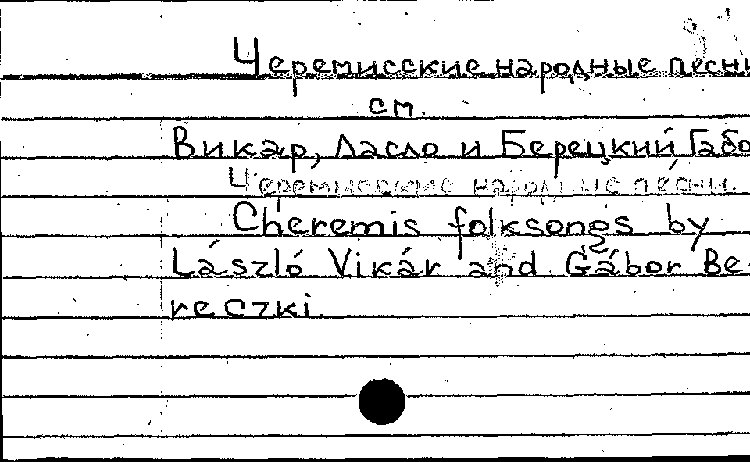 Черемисские народные песни
см.
Викар, Ласло и Берецкий Габо
Черемисские народные песни.
Cheremis folksongs by
László Vikár and Gábor Be-
reczki.